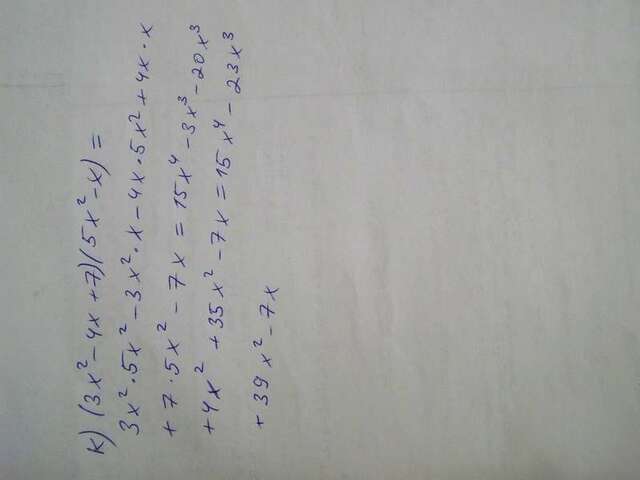 к) (3x² - 4x + 7)(5x² - x) =
3x² · 5x² - 3x² · x - 4x · 5x² + 4x · x
+ 7 · 5x² - 7x = 15x⁴ - 3x³ - 20x³
+ 4x² + 35x² - 7x = 15x⁴ - 23x³
+ 39x² - 7x